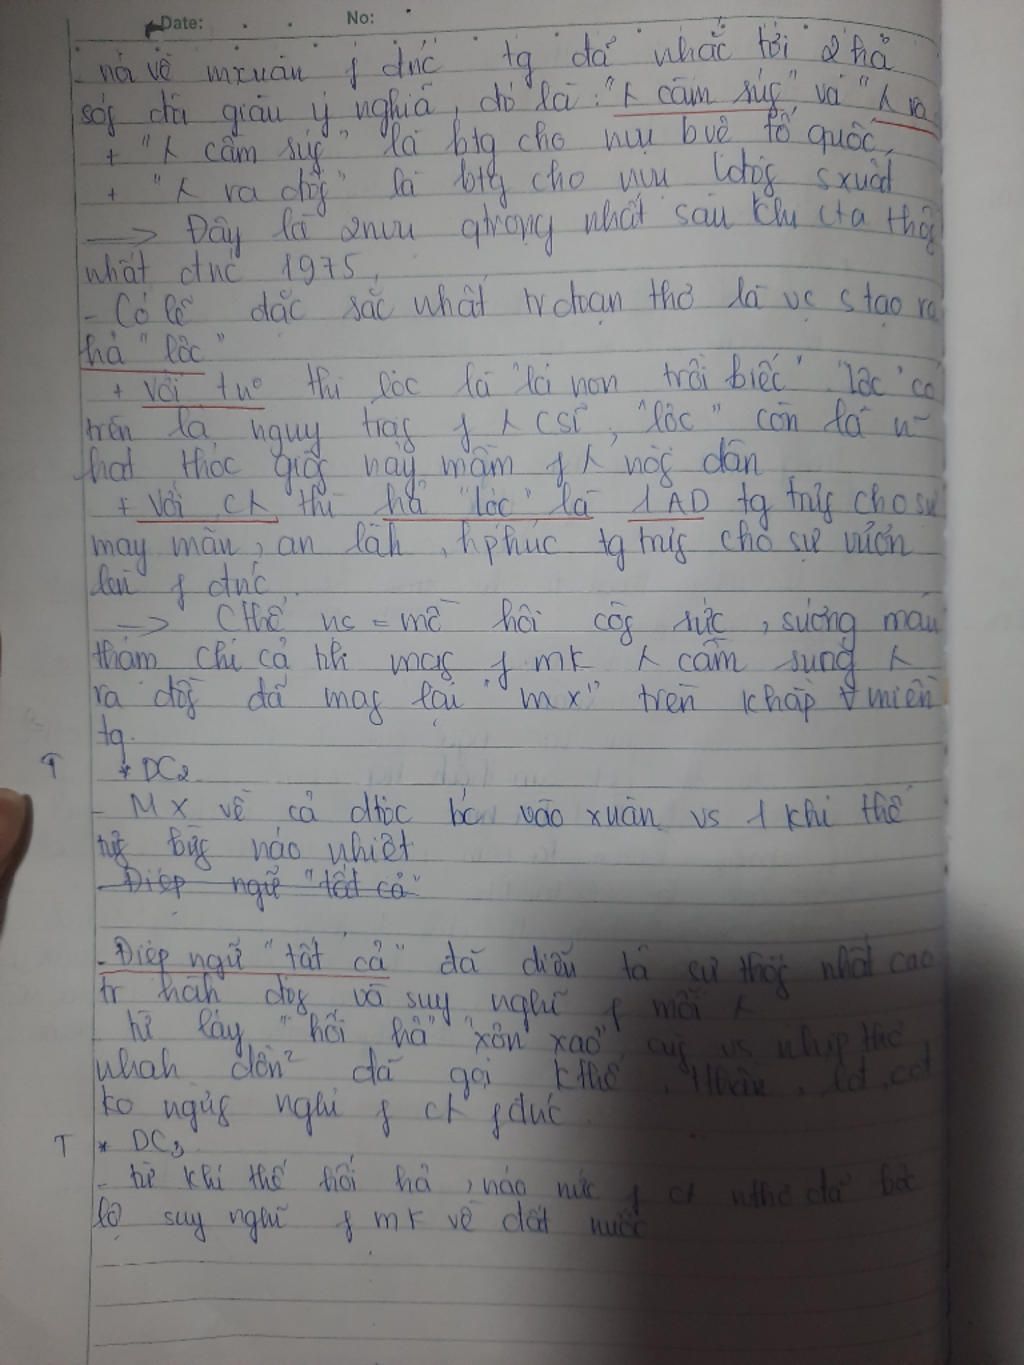 Date: No:
- nói về mxuân f đnc tg đã nhắc tới 2 hả
sóg đôi giàu ý nghiã, đó là : "λ cầm súg" và "λ ra
+ "λ cầm súg" là btg cho nvu bvệ tổ quốc,
+ "λ ra đồg" là btg cho nvu lđộg sxuất
→ Đây là 2nvu qtrọng nhất sau khi cta thốg
nhất đnc 1975,
- Có lẽ đặc sắc nhất tr đoạn thơ là vc s tạo ra
hả "lộc"
+ Với tnº thì lộc là "lá non trồi biếc" "lộc" có
trên la nguy trag f λ csĩ, "lộc" còn là n~
hạt thóc giốg nảy mầm f λ nôg dân
+ Với cλ thì hả "lộc" là 1 AD tg trưg cho sự
may mắn, an làh, hphúc tg trưg cho sự vươn
lên f đnc.
→ Cthể ns = mồ hôi côg sức, sương máu
thậm chí cả tíh mạg f mk λ cầm sung λ
ra đồg đã mag lại "mx" trên khắp ∀ miền
tq.
T * DC2
- MX về cả dtộc bc vào xuân vs 1 khí thế
tưg bừg náo nhiệt
- Điệp ngữ "tất cả"
- Điệp ngữ "tất cả" đã diễn tả sự thốg nhất cao
tr hàh độg và suy nghĩ f mỗi λ
từ láy "hối hả" "xôn xao" cùg vs nhịp thơ
nhah dồn² đã gợi kthế
ko ngừg nghỉ f cλ f đnc.
T * DC3
- từ khí thế hối hả, náo nức f cλ nthơ đã bộc
lộ suy nghĩ f mk về đất nước